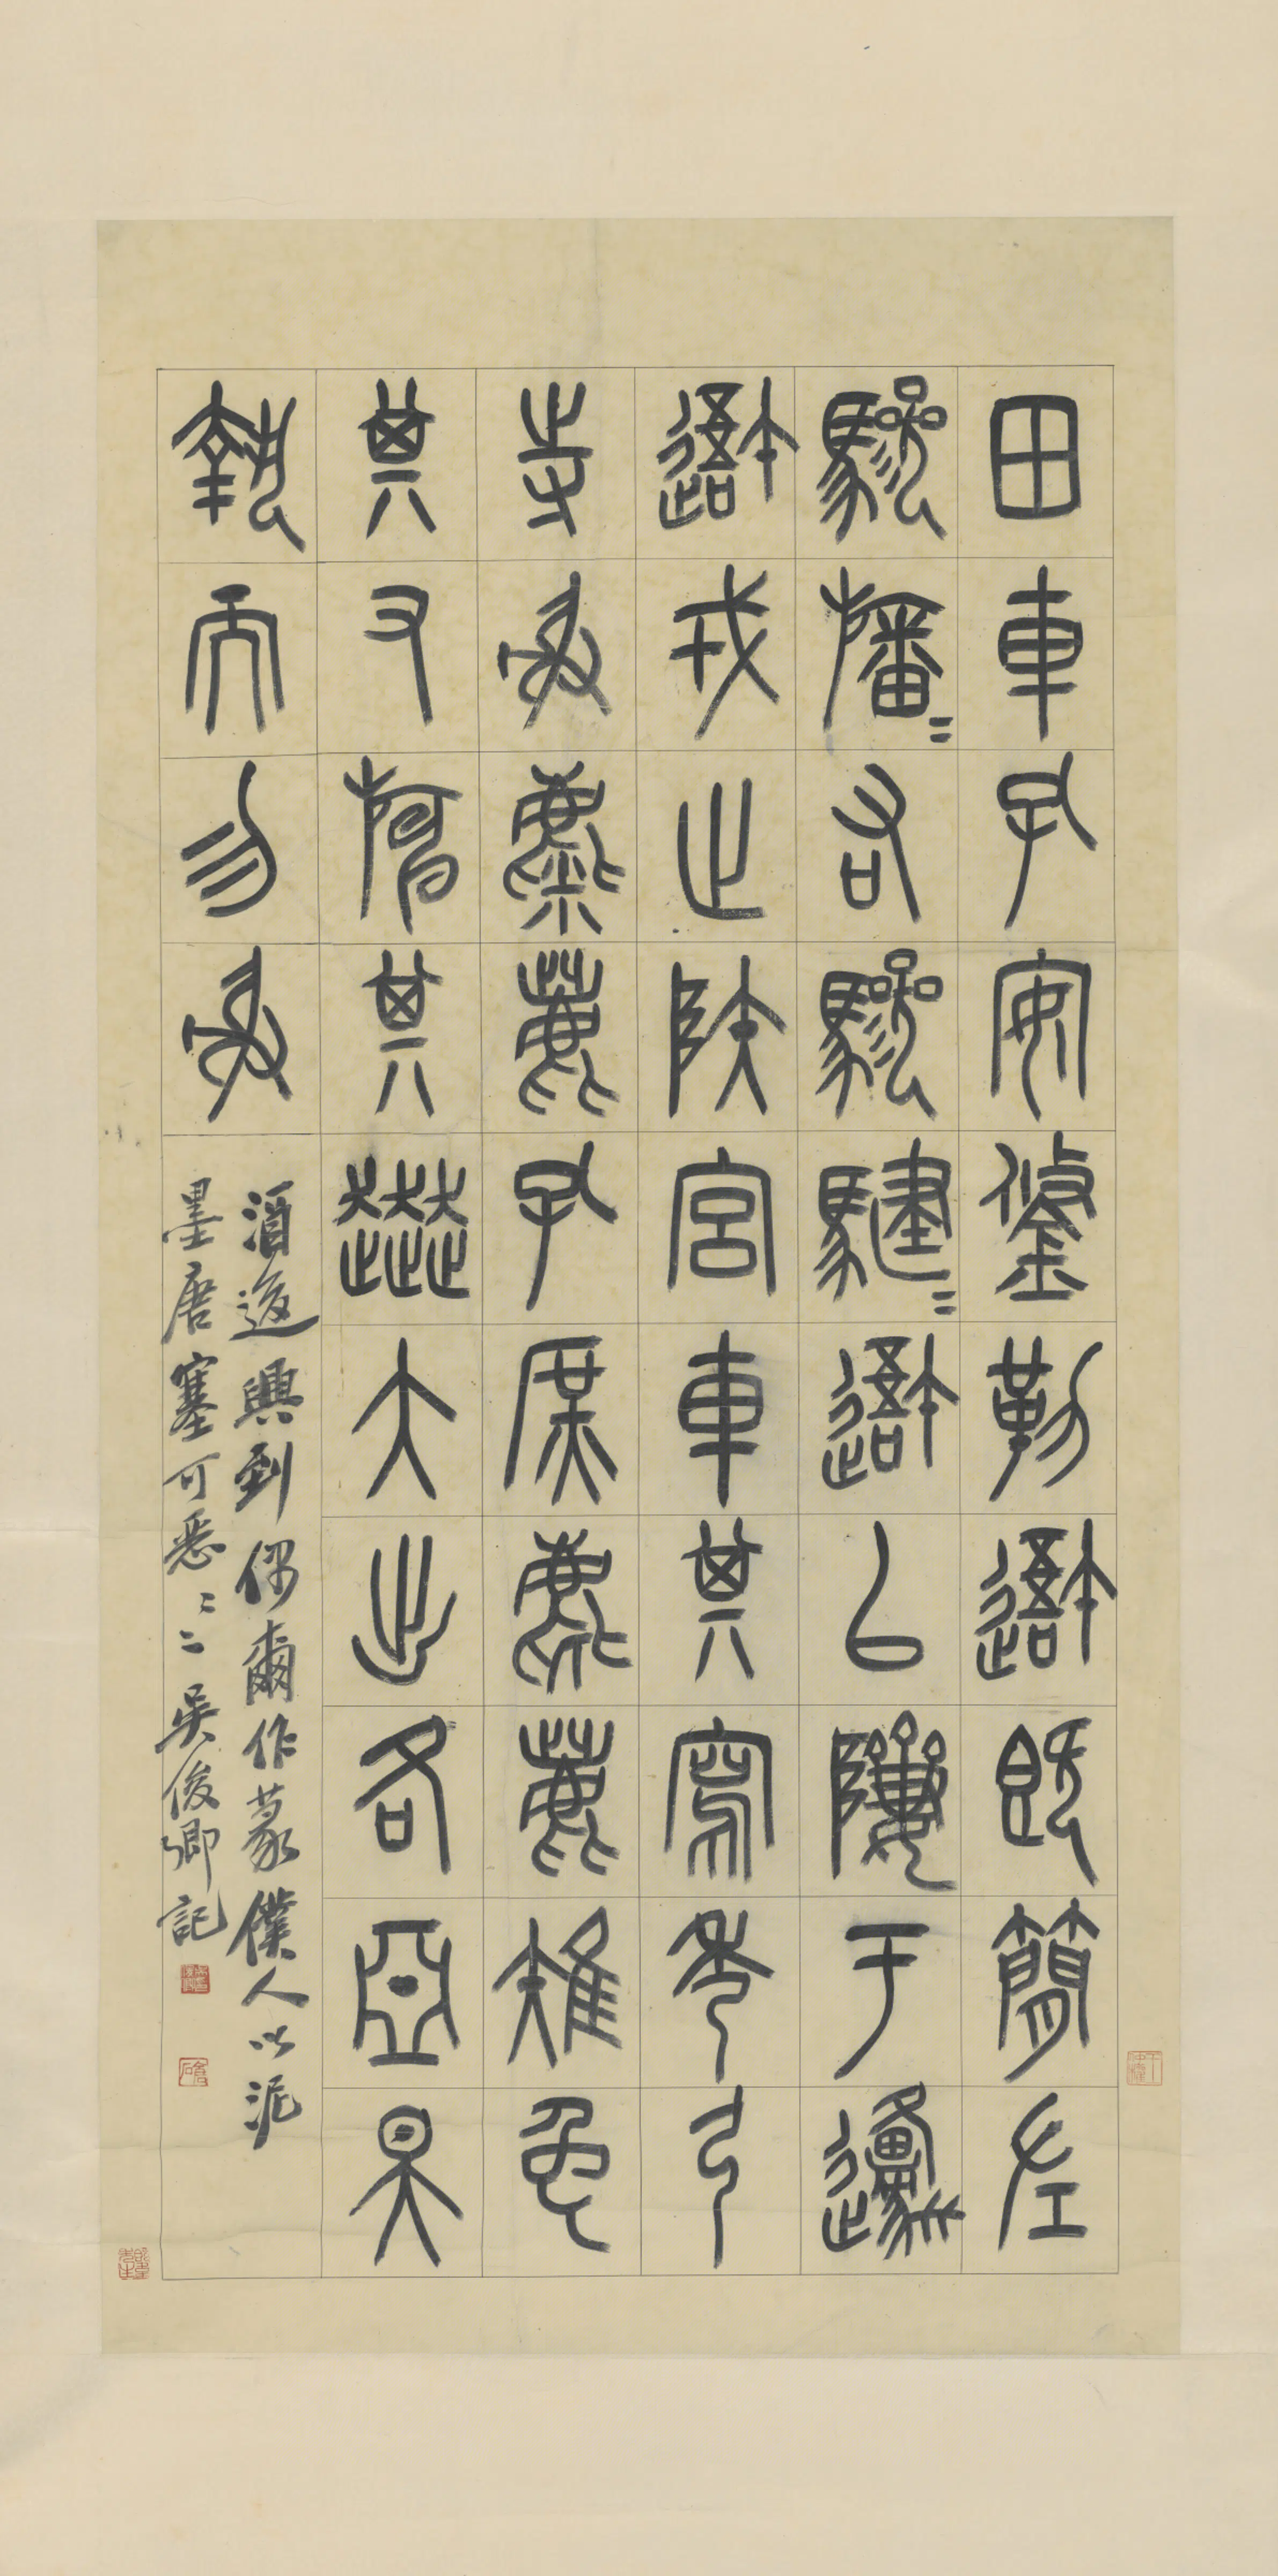 田車孔安鋚勒吾既簡左
驂旛〻右驂騝〻吾以隮于邍
吾戎止陜宮車其寫秀弓
寺射麋鹿孔庶麀鹿雉兔
其又旃其奔大出各亞昊
執而勿射
酒後興到偶爾作篆僕人以泥
墨唐塞可惡〻〻吳俊卿記